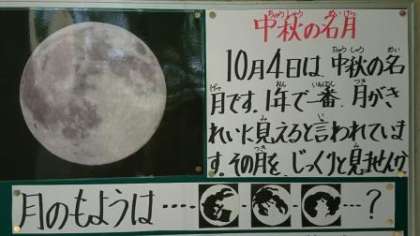 中秋の名月
ちゅうしゅう めいげつ
10月4日は、中秋の名
月です。1年で一番、月がき
れいに見えると言われていま
す。その月を、じっくりと見ませんか
月のもようは……
……?